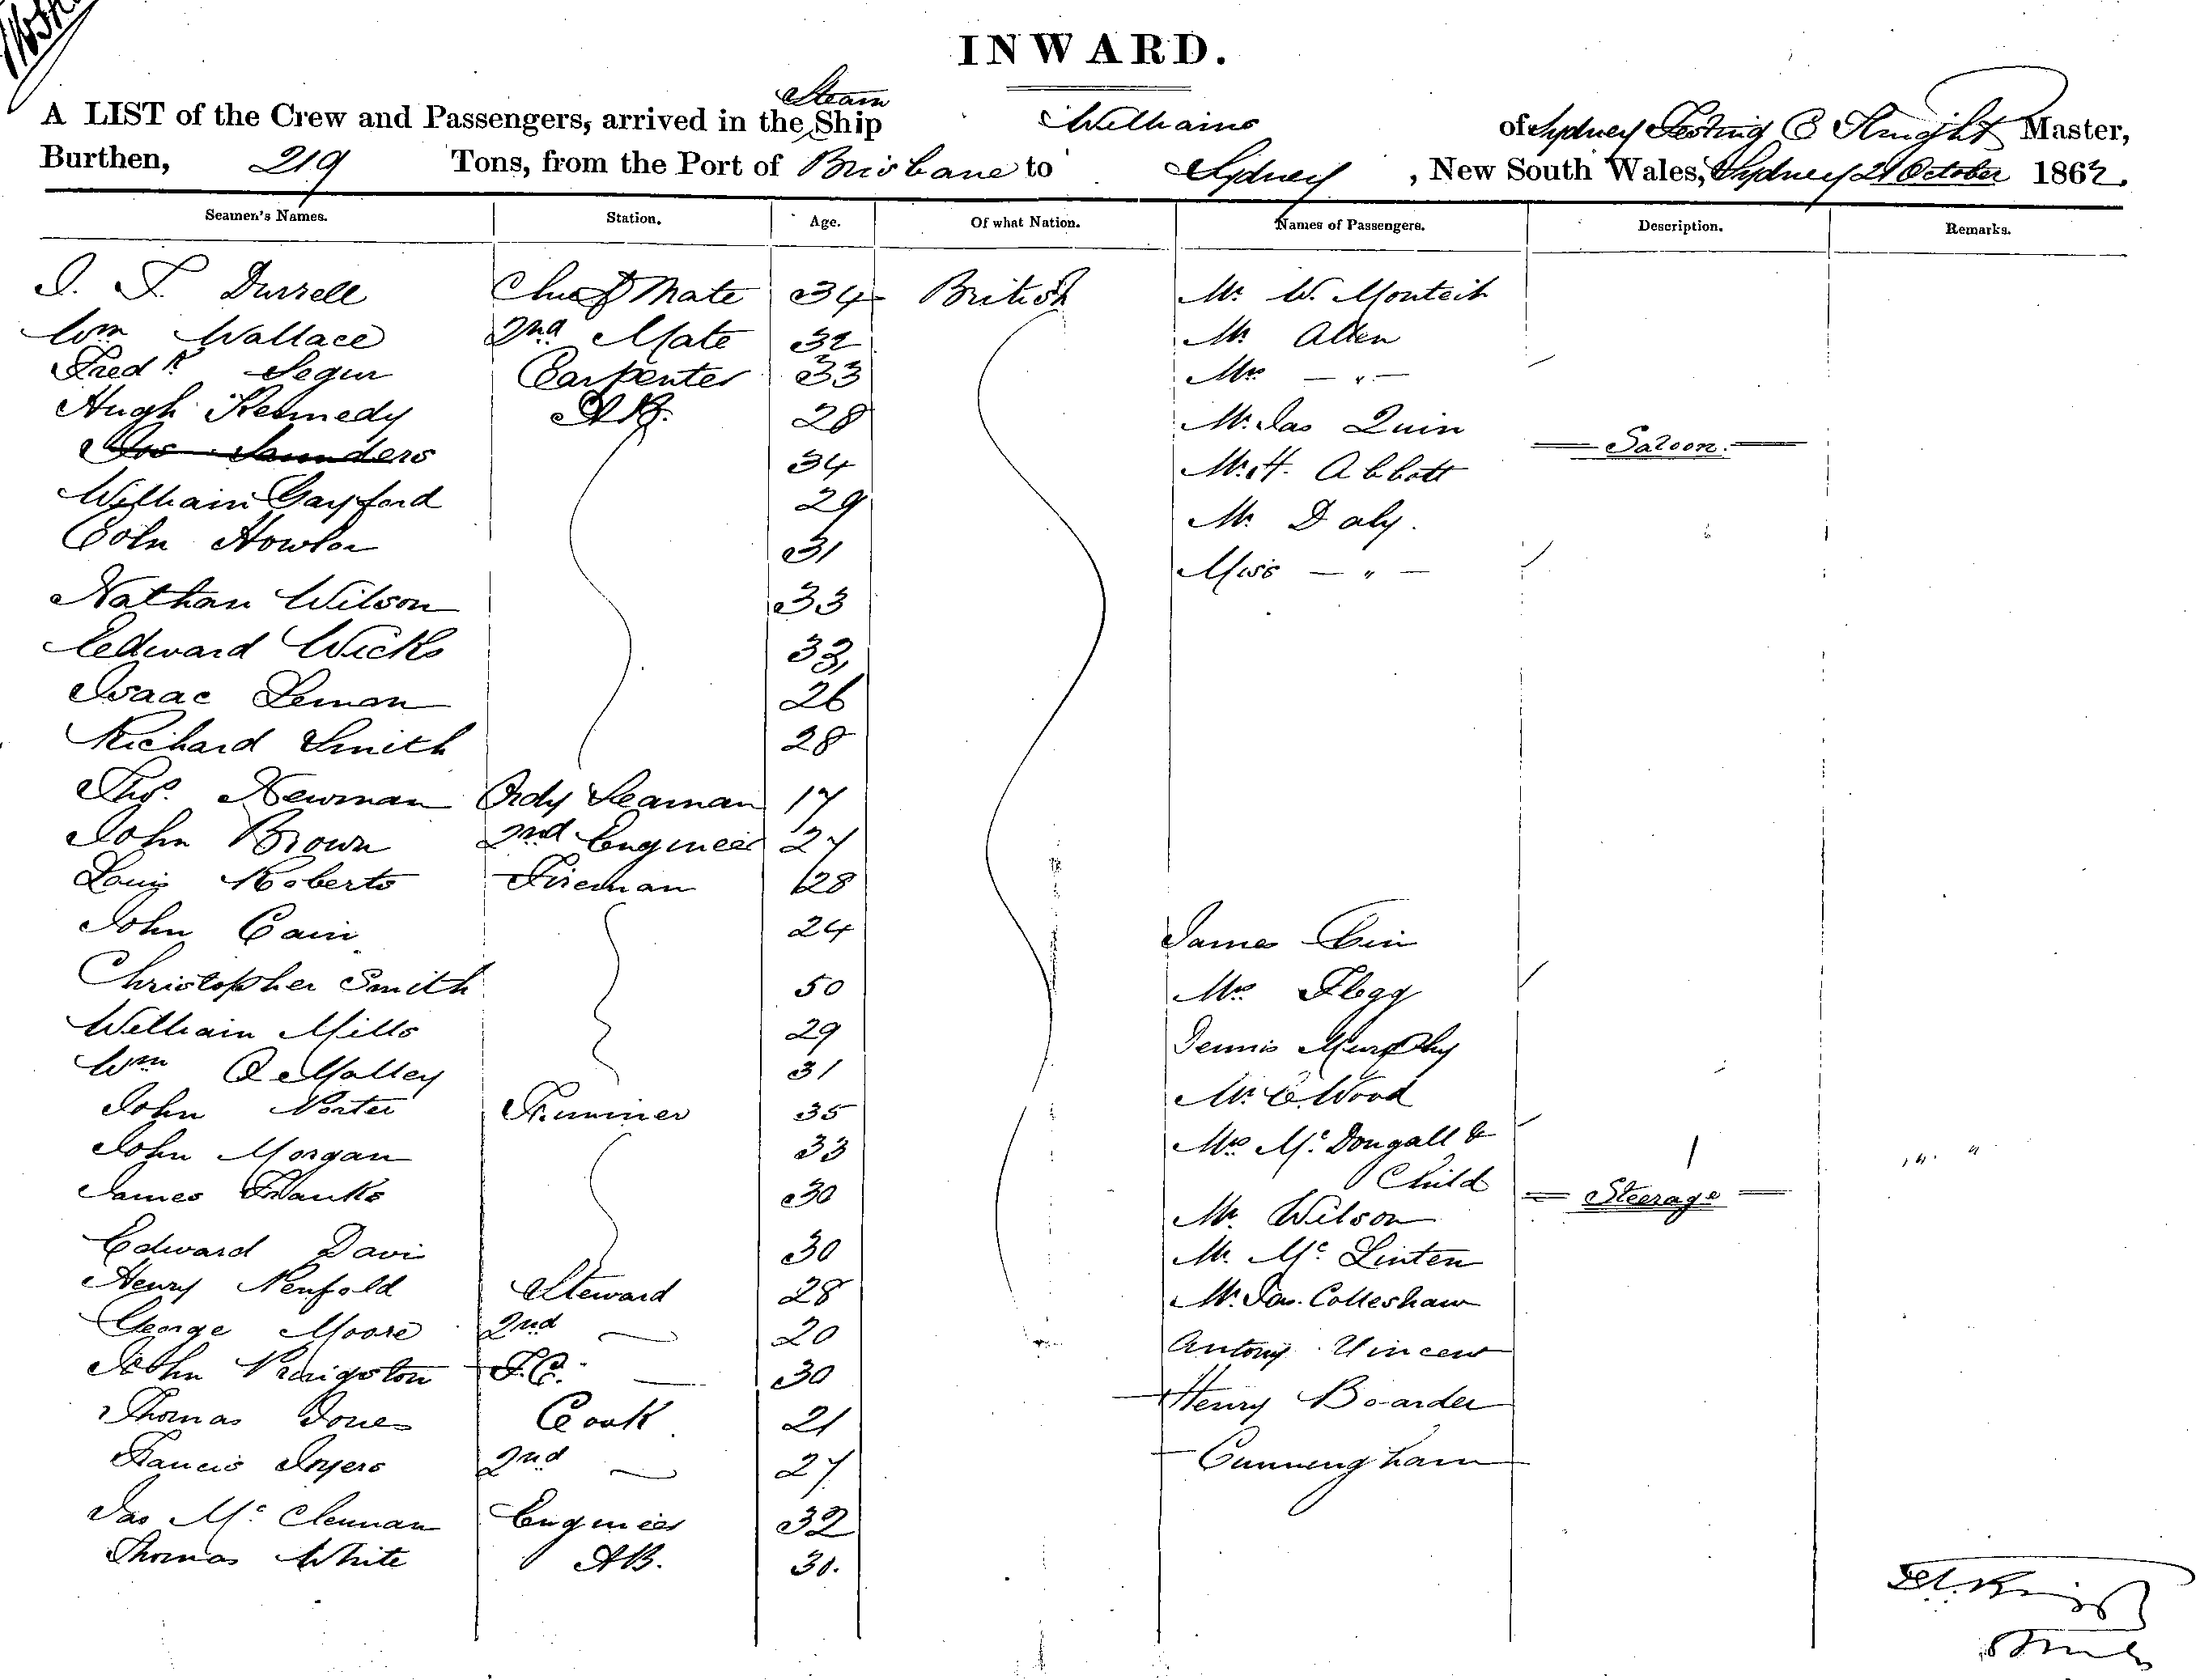 INWARD.
A LIST of the Crew and Passengers, arrived in the Steam Ship Williams of Sydney Festing C Knight Master,
Burthen, 219 Tons, from the Port of Brisbane to Sydney, New South Wales, Sydney 21 October 1862.
Seamen's Names. Station. Age. Of what Nation. Names of Passengers. Description. Remarks.
Durrell Chief Mate 34 British Mr. W. Monteith
Wm Wallace 2nd Mate 32 Mr. Allen
Fredk Segur Carpenter 33 Mrs — " —
Hugh Kennedy A.B. 28 Mr. Jas Quin
Saunders 34 Mr. H. Abbott Saloon.
William Gayford 29 Mr. Daly.
Coln 31 Miss — " —
Nathan Wilson 33
Edward Wicks 33
Isaac Leman 26
Richard Smith 28
Thos. Newman Ordy Seaman 17
John Brown 2nd Engineer 27
Louis Roberts Fireman 28
John Cain 24 James
Christopher Smith 50 Mrs Flegg
William Mills 29 Dennis Murphy
Wm O'Malley 31 Mr. C. Wood
John Porter Trimmer 35
John Morgan 33 Mrs McDougall &
James Franks 30 Child Steerage
Mr. Wilson
Edward Davis 30 Mr. McLinten
Henry Penfold Steward 28 Mr. Jas. Colleshaw
George Moore 2nd — 20
John 30 Antony Vincent
Thomas Jones Cook 21 Henry Boarder
Francis 2nd — 27 Cunningham
Jas McClennan Engineer 32
Thomas White AB. 30.